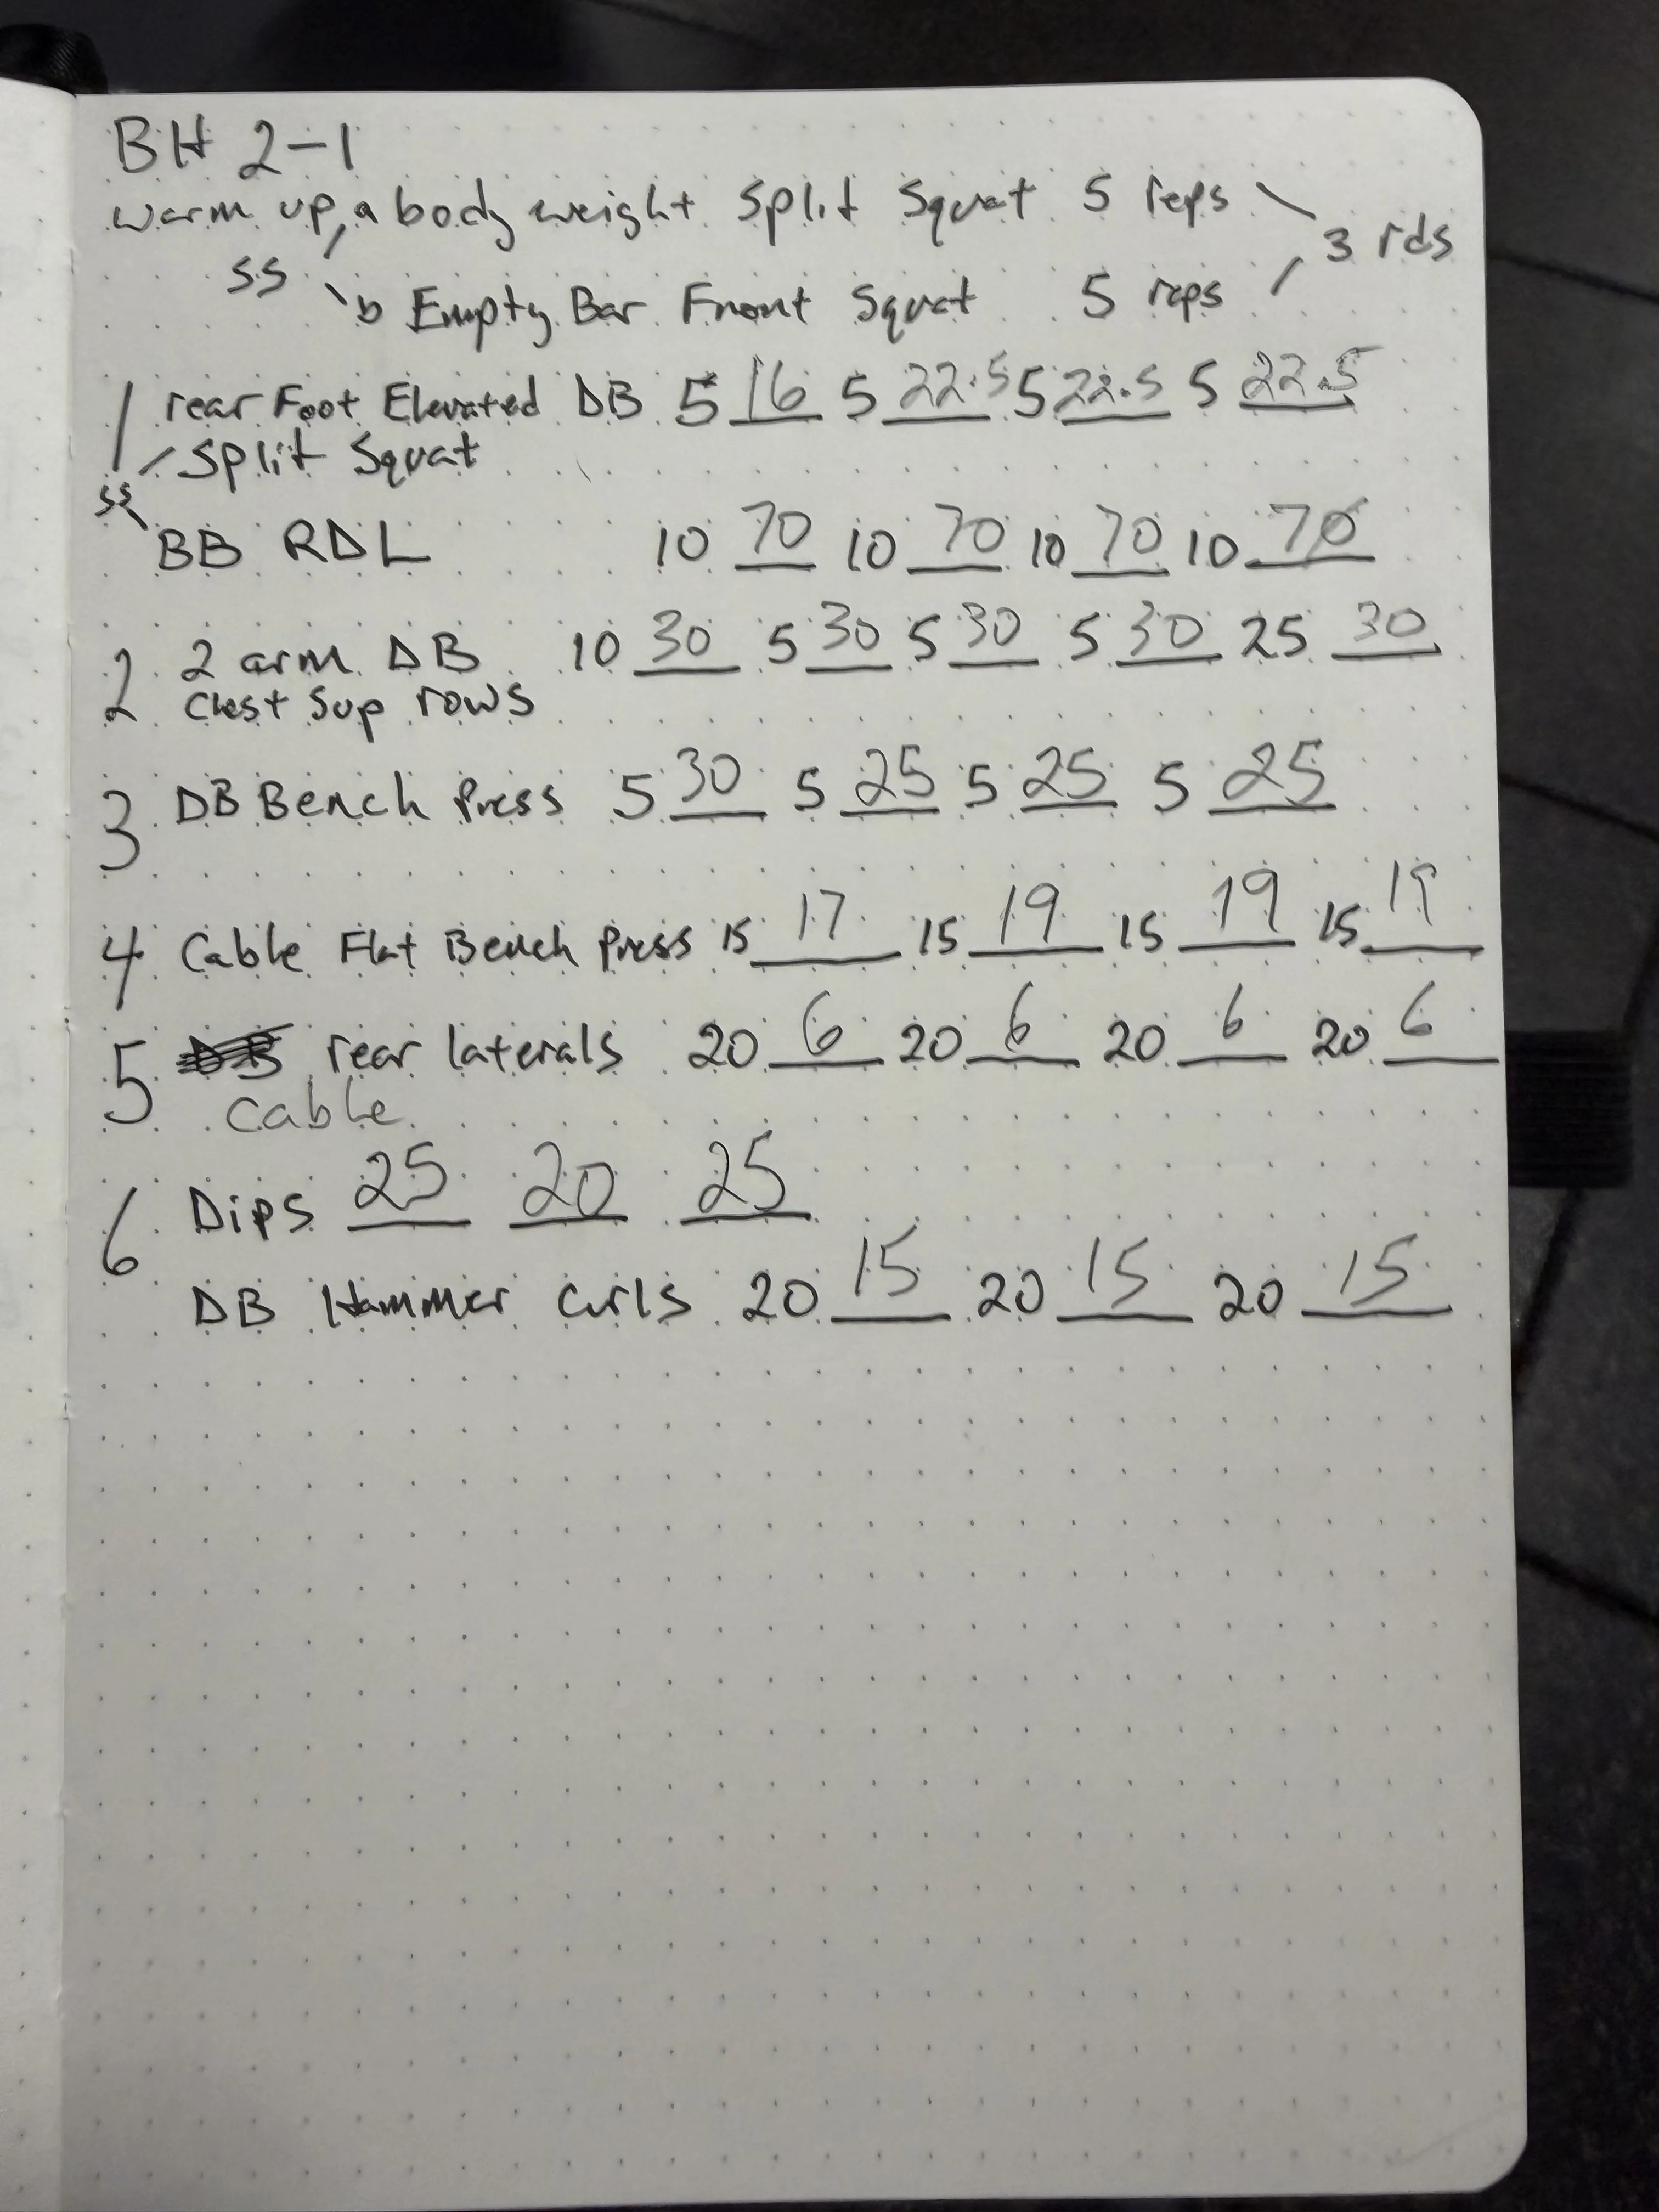 BH 2-1
warm up, a body weight Split Squat 5 reps
3 rds
SS
b Empty Bar Front Squat 5 reps
1 rear Foot Elevated DB 5 16 5 22.5 5 22.5 5 22.5
Split Squat
SS
BB RDL 10 70 10 70 10 70 10 70
2 2 arm DB 10 30 5 30 5 30 5 30 25 30
Chest Sup rows
3 DB Bench Press 5 30 5 25 5 25 5 25
4 Cable Flat Bench Press 15 17 15 19 15 19 15 19
5 DB rear laterals 20 6 20 6 20 6 20 6
Cable
6 Dips 25 20 25
DB Hammer Curls 20 15 20 15 20 15